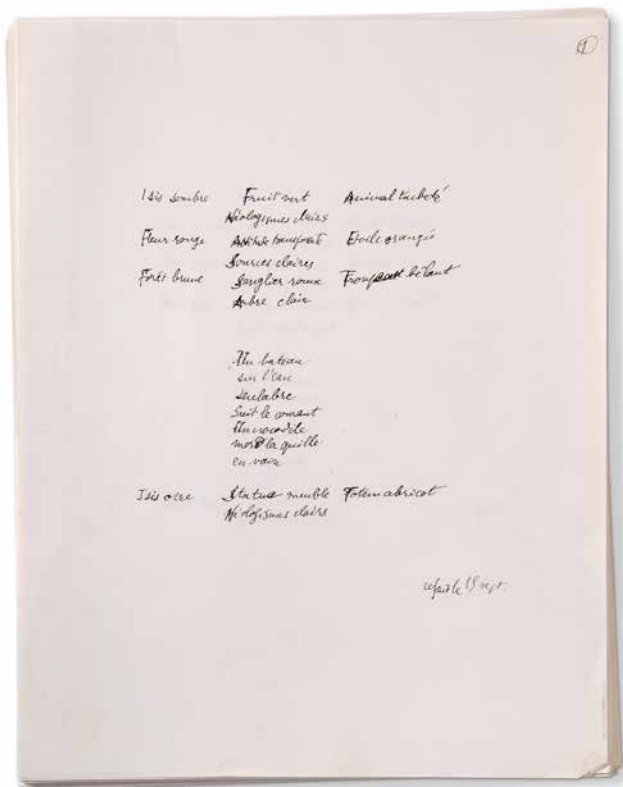 1
Isis sombre Fruit vert Animal tacheté
Néologismes clairs
Fleur rouge Attitude transparente Etoile orangée
Sources claires
Forêt brune Sanglier roux Troupeau bêlant
Arbre clair
Un bateau
sur l'eau
Suit le courant
Un crocodile
mord la quille
en vain
Isis ocre Statue meuble Totem abricot
Néologismes clairs
refait le 15 sept.